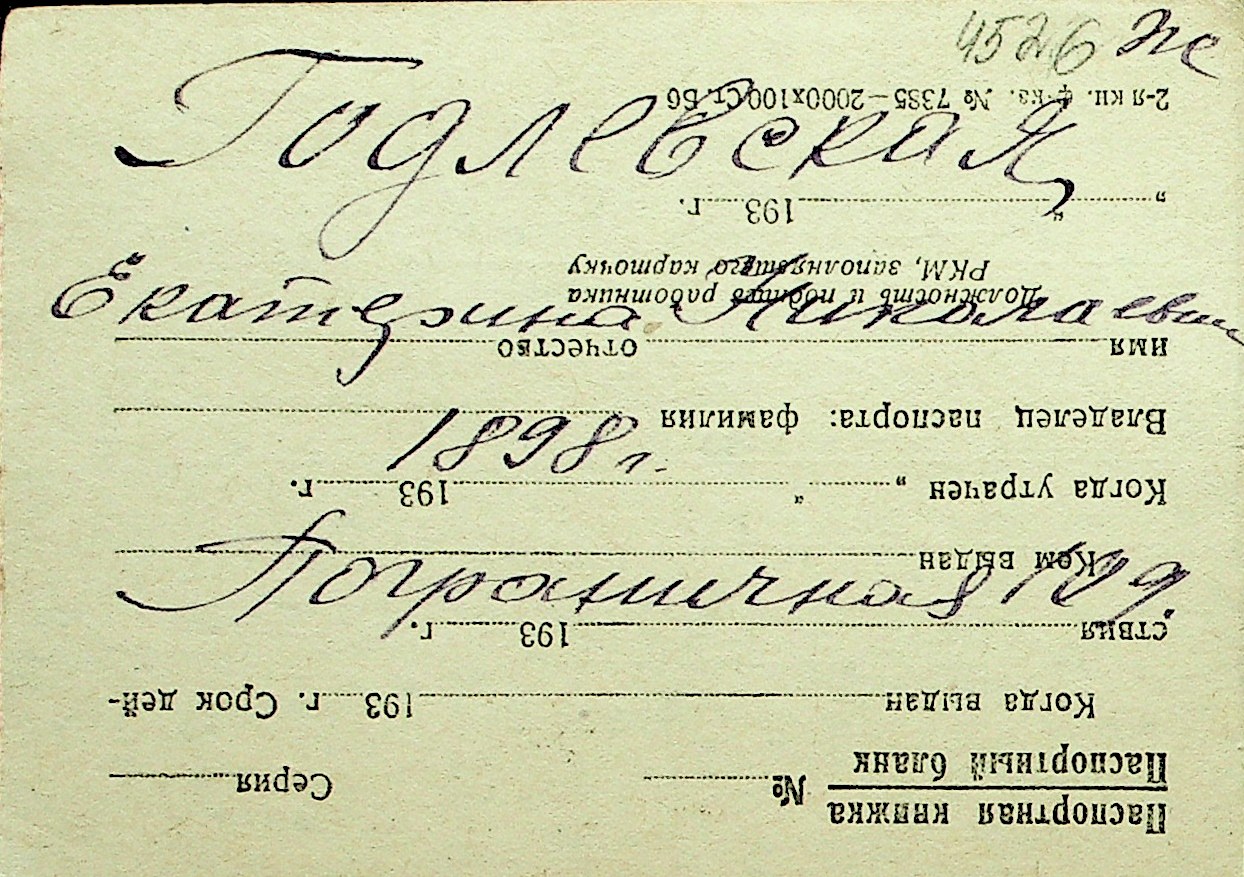 4526
Годлевская
Екатерина Николаевна
1898 г.
Пограничная 109
Паспортная книжка
Паспортный бланк № Серия
Когда выдан 193 г. Срок дей-
ствия 193 г.
Кем выдан
Когда утрачен „ “ 193 г.
Владелец паспорта: фамилия
имя отчество
Должность и подпись работника
РКМ, заполнявшего карточку
„ “ 193 г.
2-я кн. ф-ка. № 7385—2000х100 Ст. Бб